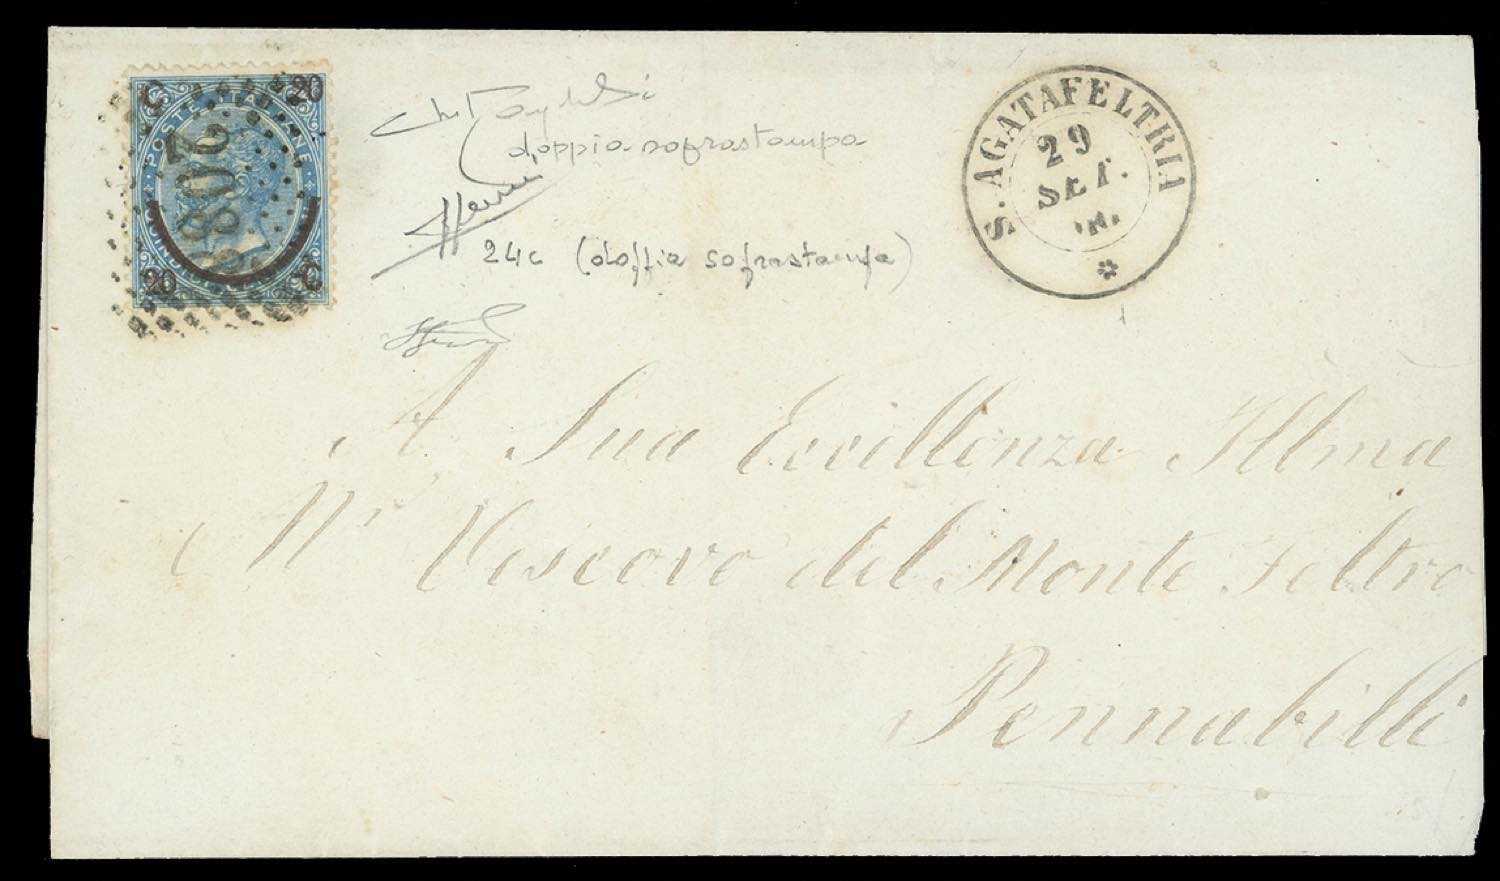 C 20
POSTE ITALIANE
2083
20 C
doppia soprastampa
24c (doppia soprastampa)
S. AGATAFELTRIA
29
SET.
A Sua Eccellenza Illma
Mr Vescovo del Monte Feltro
Pennabilli